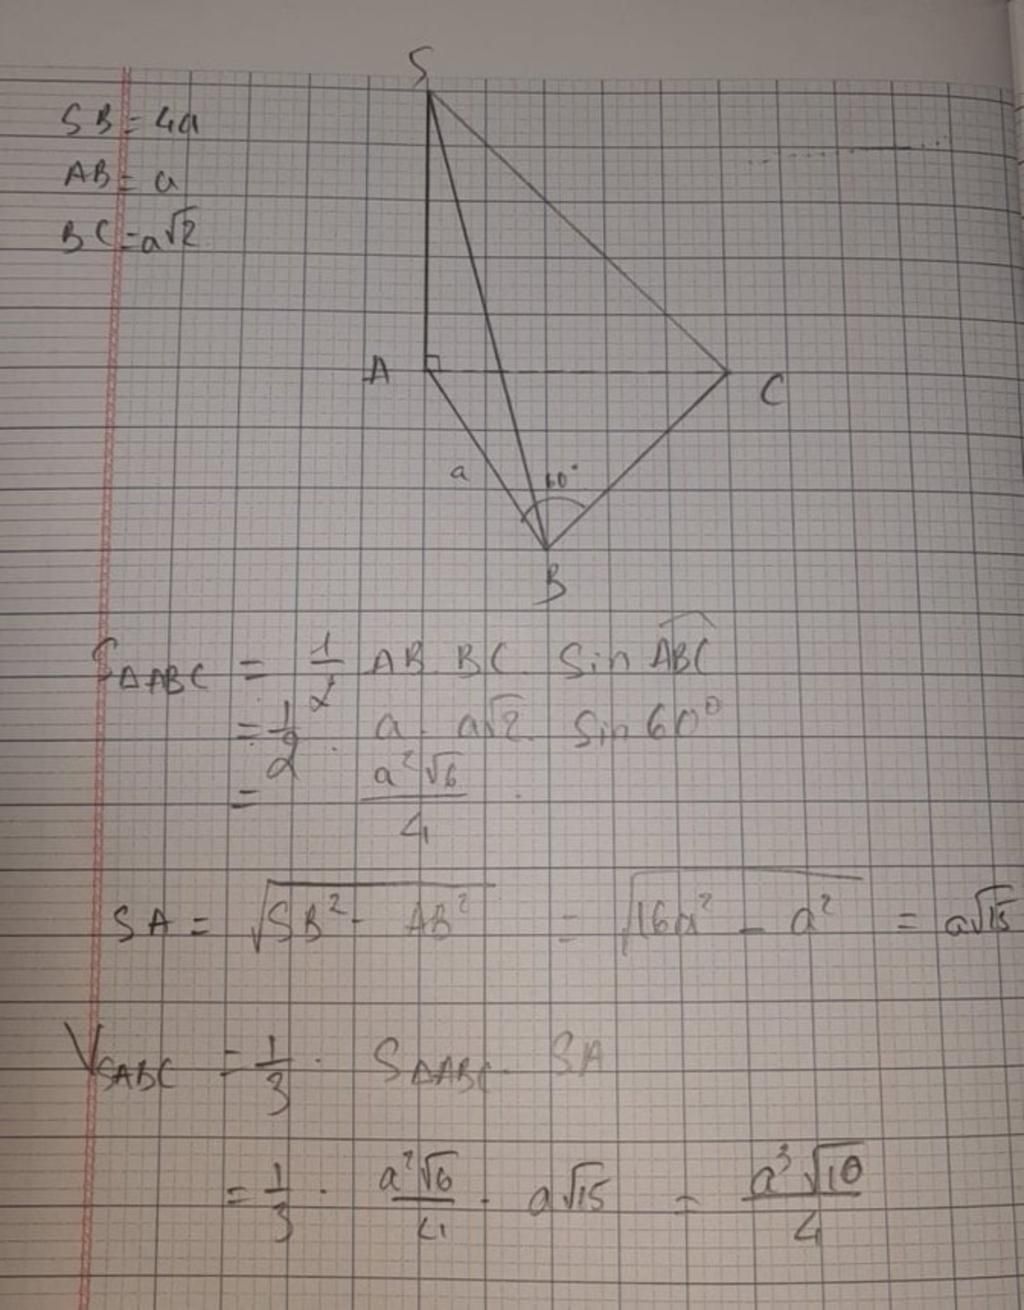 S
SB = 4a
AB = a
BC = a√2
A
C
a
60°
B
S△ABC = 1/2 AB. BC. Sin ABC
= 1/2 . a. a√2. Sin 60°
= a²√6/4 .
SA = √(SB² - AB²) = √(16a² - a²) = a√15
VSABC = 1/3 . S△ABC. SA
= 1/3 . a²√6/4 . a√15 = a³√10/4